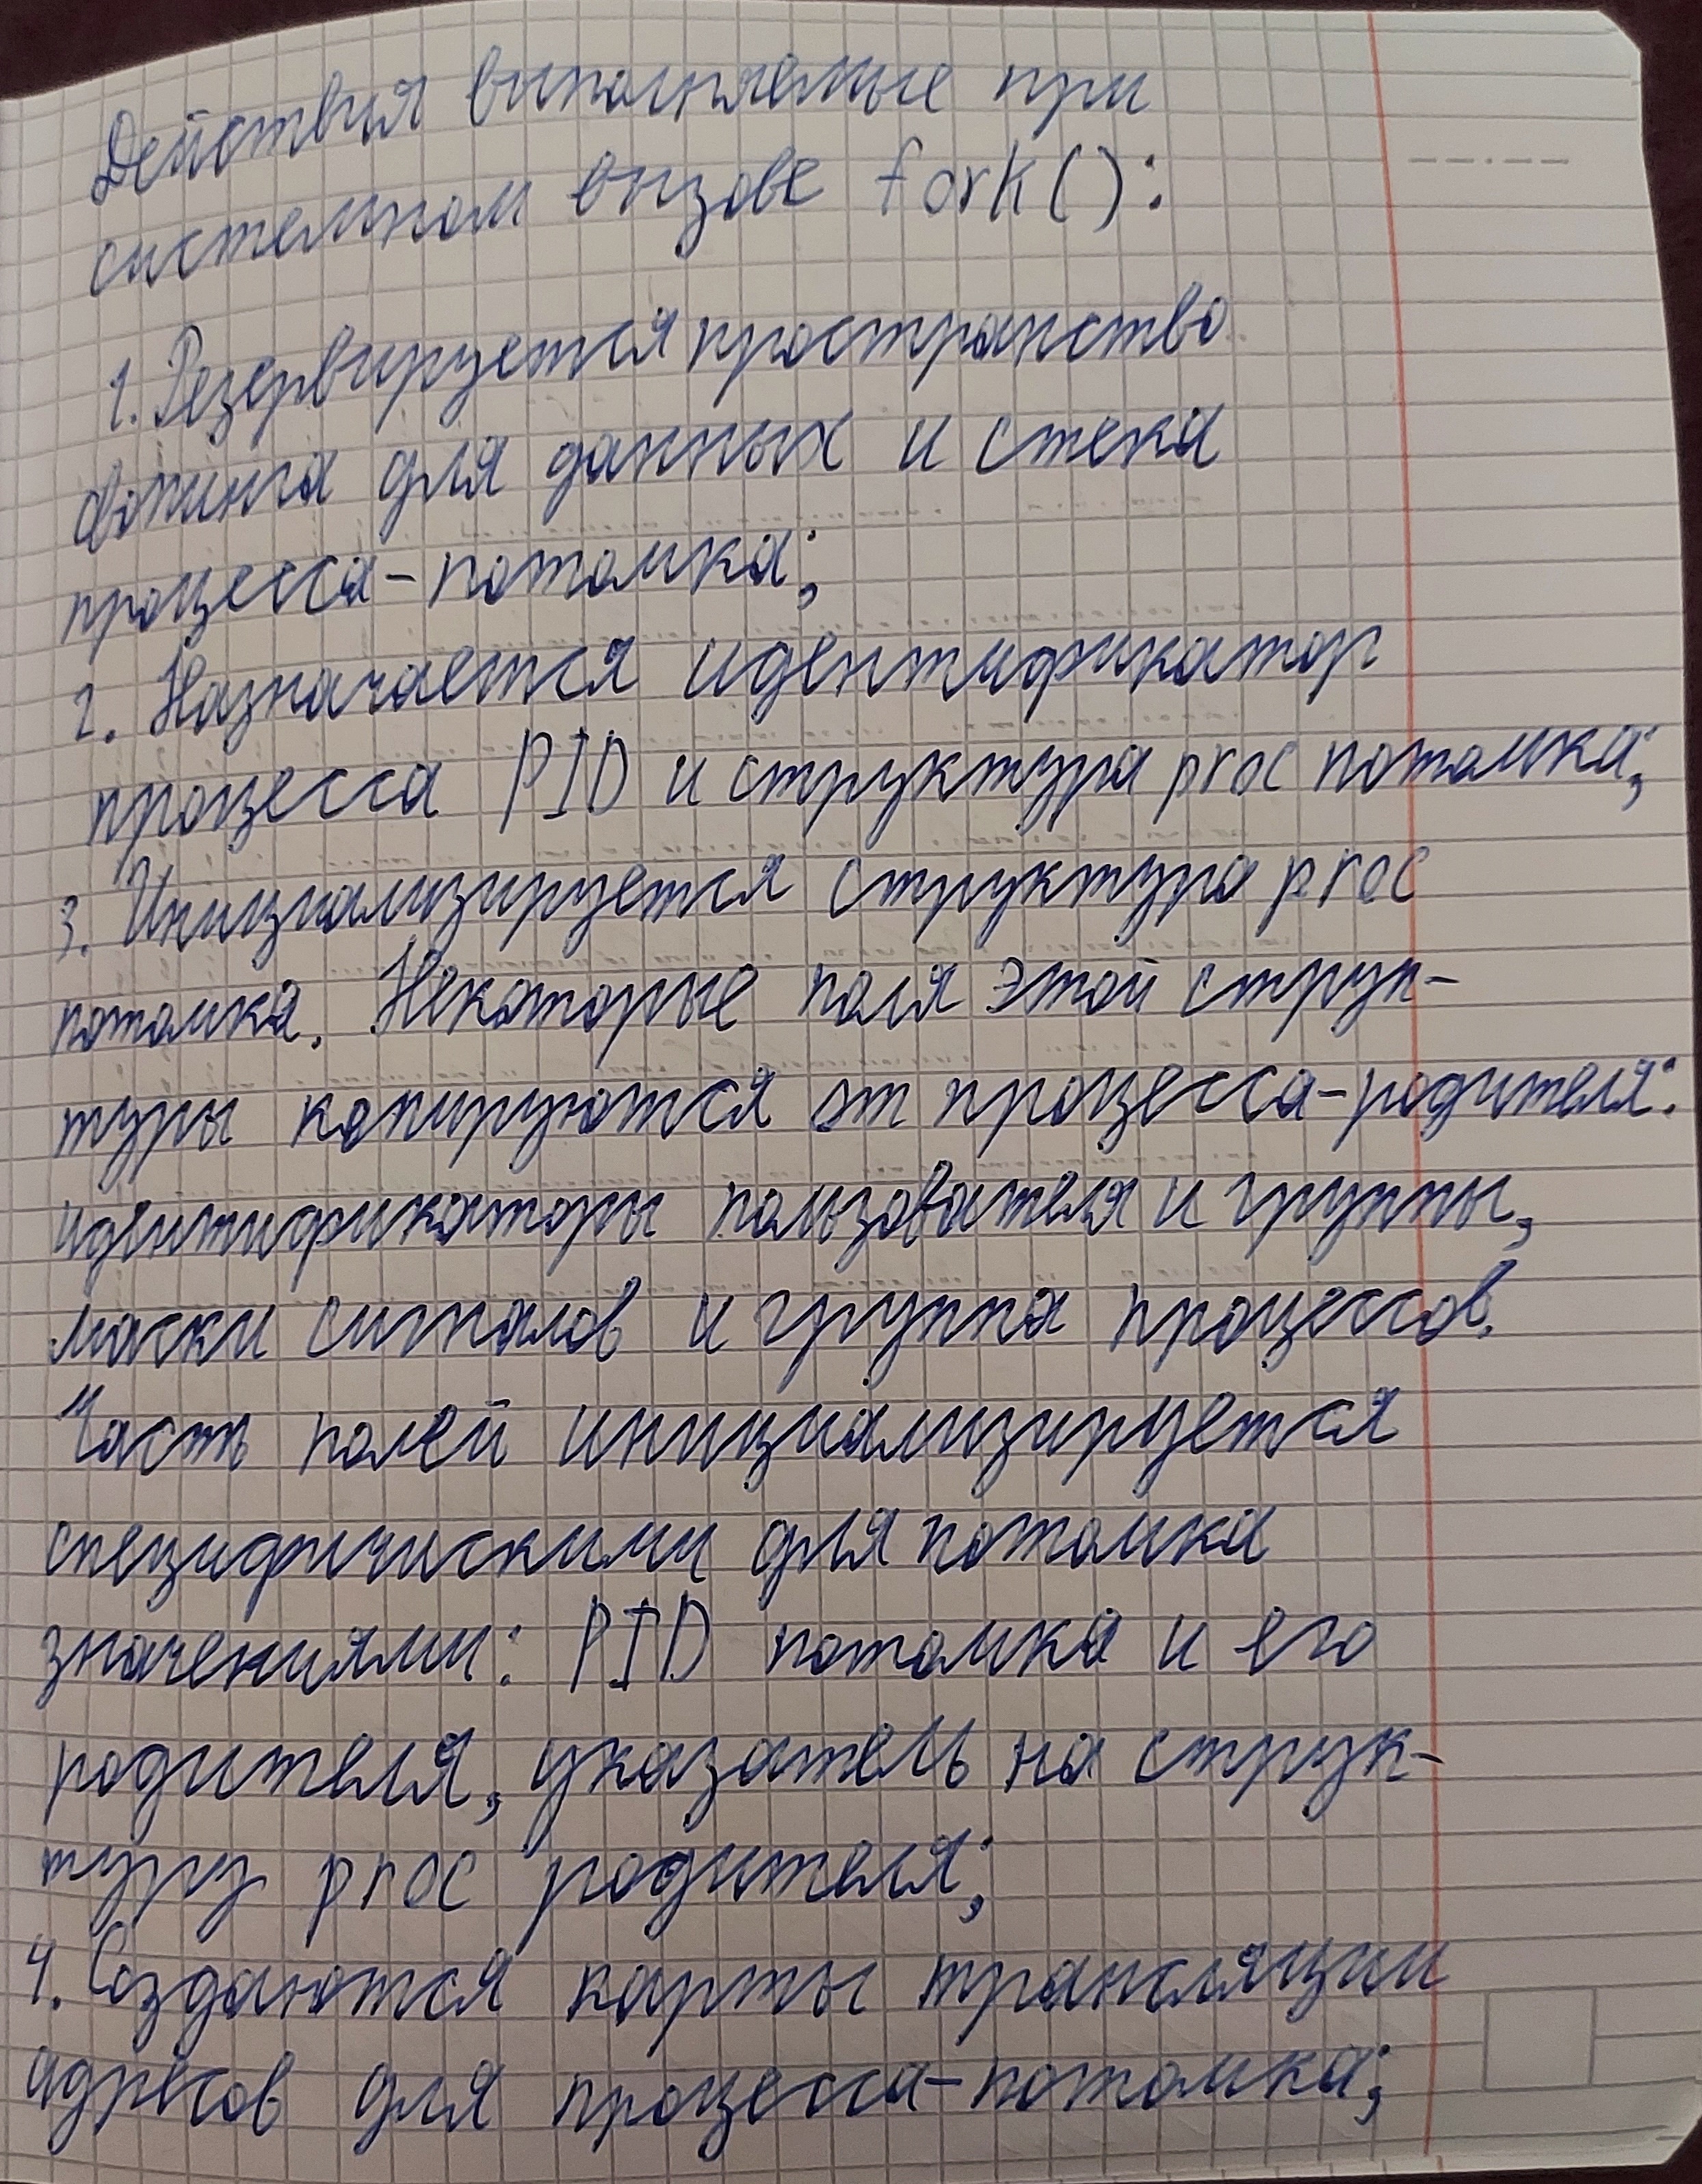 Действия выполняемые при
системном вызове fork():
1. Резервируется пространство
свопинга для данных и стека
процесса-потомка;
2. Назначается идентификатор
процесса PID и структура proc потомка;
3. Инициализируется структура proc
потомка. Некоторые поля этой струк-
туры копируются от процесса-родителя:
идентификаторы пользователя и группы,
маски сигналов и группа процессов.
Часть полей инициализируется
специфическими для потомка
значениями: PID потомка и его
родителя, указатель на струк-
туру proc родителя;
4. Создаются карты трансляции
адресов для процесса-потомка;